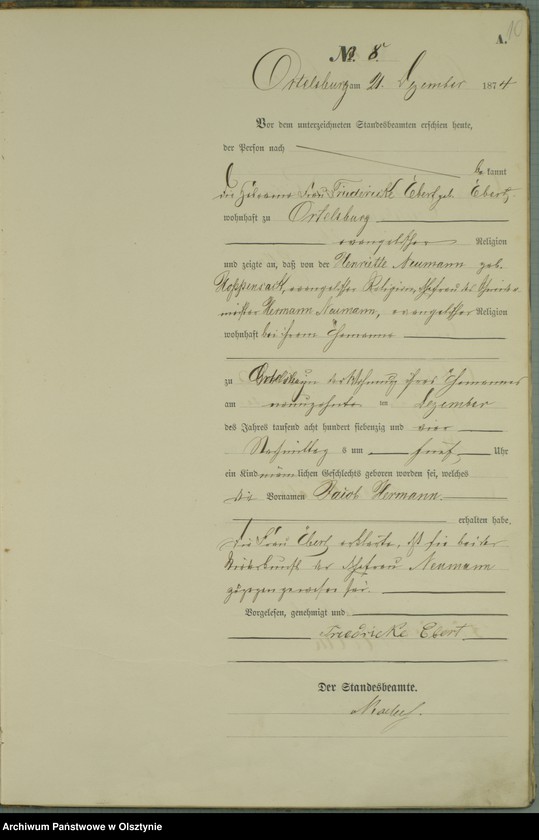 10
A.
No. 8.
Ortelsburg am 21. Dezember 1874
Vor dem unterzeichneten Standesbeamten erschien heute,
der Person nach
be kannt
die Hebamme Frau Friedericke Ebert geb. Ebert,
wohnhaft zu Ortelsburg
evangelischer Religion
und zeigte an, daß von der Henriette Neumann geb.
evangelischer Religion, Ehefrau des
Hermann Neumann, evangelischer Religion
wohnhaft bei ihrem Ehemanne
zu Ortelsburg in der Wohnung ihres Ehemannes
am neunzehnten im Dezember
des Jahres tausend acht hundert siebenzig und vier
Nachmittag s um fünf Uhr
ein Kind männ lichen Geschlechts geboren worden sei, welches
die Vornamen Jacob Hermann
erhalten habe.
Die Frau Ebert erklärte, daß sie bei der
Niederkunft der Ehefrau Neumann
zugegen gewesen sei.
Vorgelesen, genehmigt und
Friedricke Ebert
Der Standesbeamte.
Archiwum Państwowe w Olsztynie